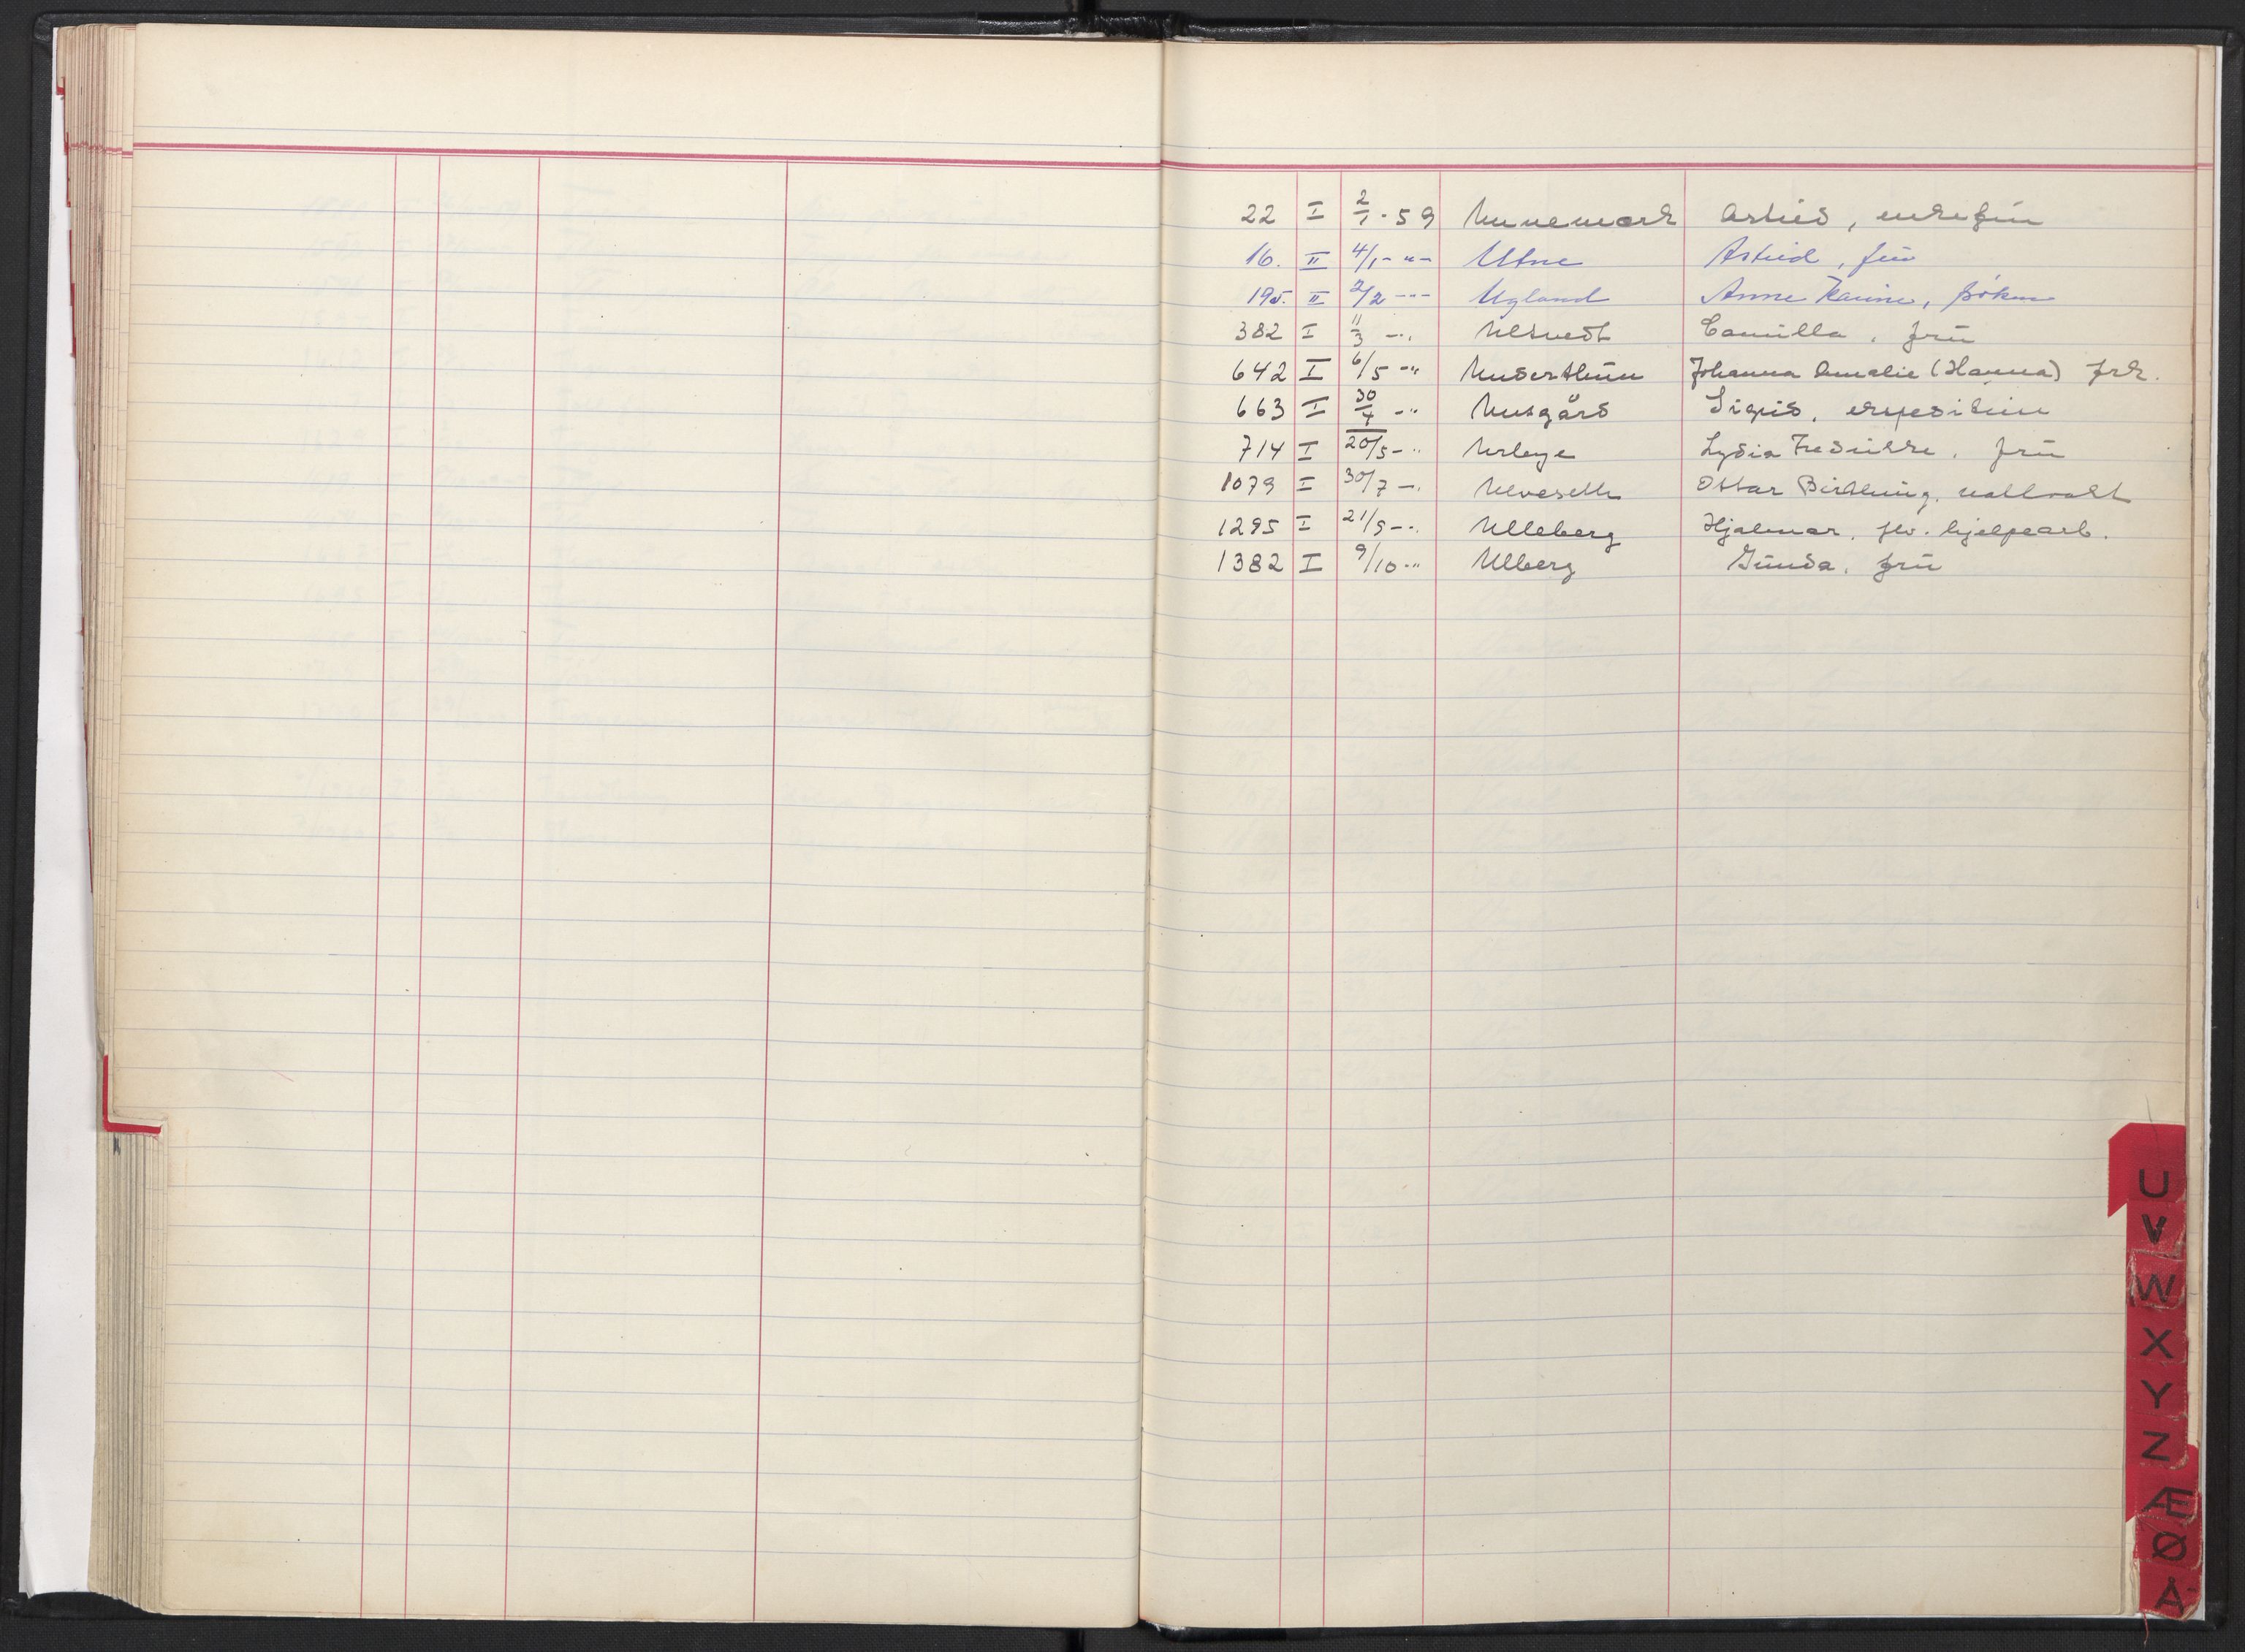 22 I 2/1 - 59 Unnemark Astrid, enkefru
16. II 4/1 - " - Utne Astrid, fru
195. II 2/2 - " - Ugland Anne Karine,
382 I 11/3 - " Ulstvedt Camilla, frü
642 I 6/5 - " Underthun Johanna Amalie (Hanna) frk.
663 I 30/4 - " Utsgård Sigrid, expeditrise
714 I 20/5 - " Urlaye Lydia Fredrikke, frü
1079 I 30/7 - " Ulveseth Ottar Birthing, nattvakt
1295 I 21/9 - " Ulleberg Hjalmar, fhv. hjelpearb.
1382 I 9/10 - " Ulberg Günda, frü
U
V
W
X
Y
Z
Æ
Ø
Å